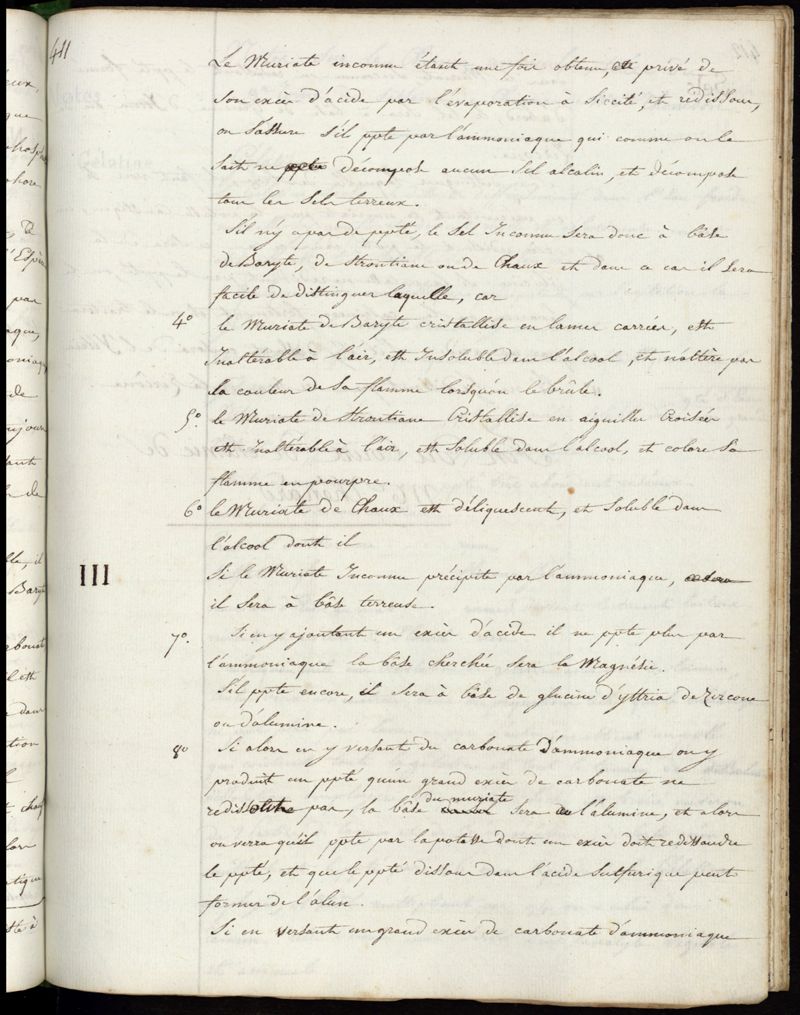 411
Le Muriate inconnu étant une fois obtenu, et privé de
son excès d'acide par l'évaporation à siccité, et redissous,
on s'assure s'il ppte par l'ammoniaque qui comme on le
sait ne décompose aucun Sel alcalin, et décompose
tous les Sels terreux.
S'il n'y a pas de ppté, le Sel Inconnu sera donc à bâse
de Baryte, de Strontiane ou de Chaux et dans ce cas il sera
facile de distinguer laquelle, car
4° le Muriate de Baryte cristallise en lames carrées, est
Inaltérable à l'air, est Insoluble dans l'alcool, et n'altère pas
la couleur de sa flamme lorsqu'on le brûle.
5° le Muriate de Strontiane Cristallise en aiguilles Croisées
est Inaltérable à l'air, est Soluble dans l'alcool, et colore sa
flamme en pourpre.
6° le Muriate de Chaux est déliquescent, et Soluble dans
l'alcool dont il
III Si le Muriate Inconnu précipite par l'ammoniaque,
il sera à bâse terreuse.
7°. Si en y ajoutant un excès d'acide il ne ppte plus par
l'ammoniaque la bâse cherchée sera la Magnésie.
S'il ppte encore, il sera à bâse de glucine d'yttria de Zircone
ou d'alumine.
8° Si alors en y versant du carbonate d'ammoniaque on y
produit un ppté qu'un grand excès de carbonate ne
redissolve pas, la bâse du muriate sera l'alumine, et alors
on verra qu'il ppte par la potasse dont un excès doit redissoudre
le ppté, et que le ppté dissous dans l'acide Sulfurique peut
former de l'alun.
Si en versant un grand excès de carbonate d'ammoniaque